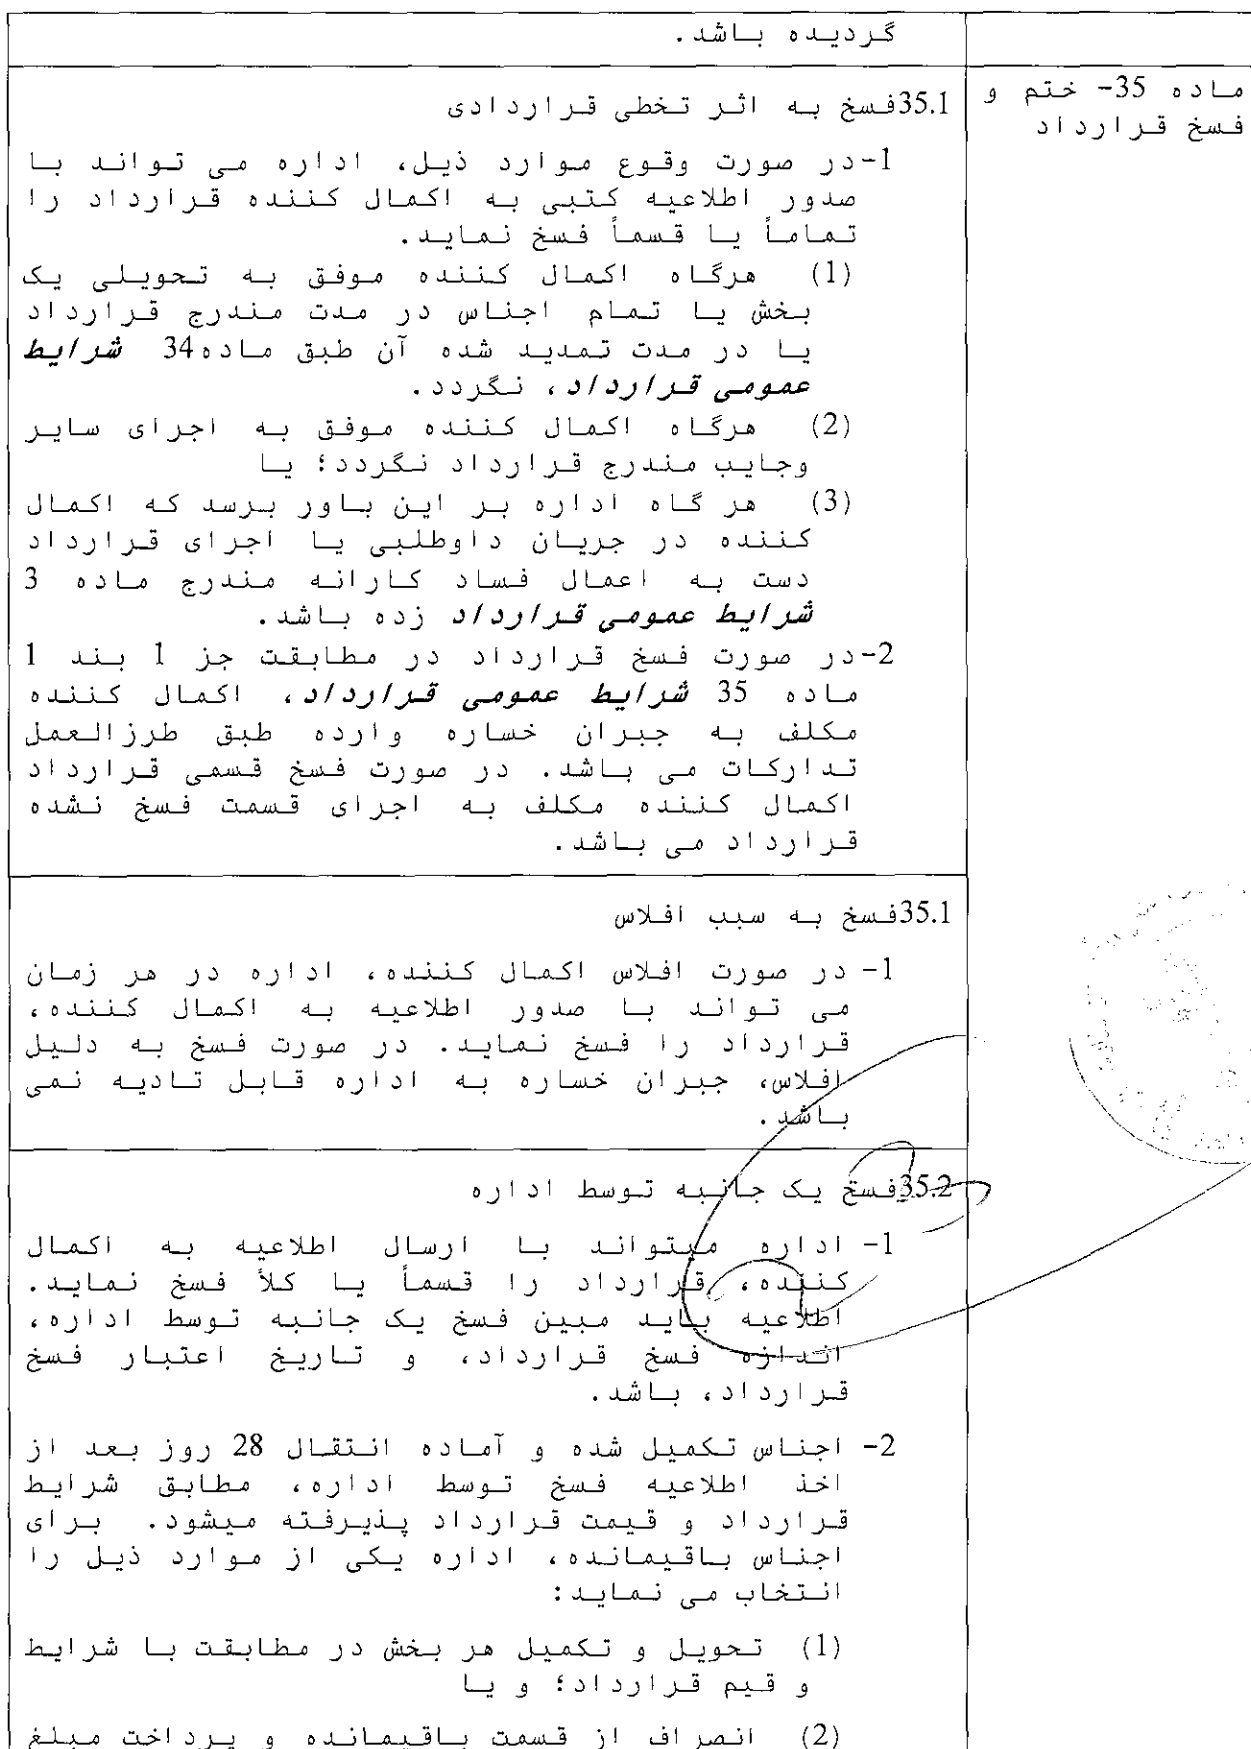 گردیده باشد.
ماده 35- ختم و
فسخ قرارداد
35.1فسخ به اثر تخطی قراردادی
1-در صورت وقوع موارد ذیل، اداره می تواند با
صدور اطلاعیه کتبی به اکمال کننده قرارداد را
تماماً یا قسماً فسخ نماید.
(1) هرگاه اکمال کننده موفق به تحویلی یک
بخش یا تمام اجناس در مدت مندرج قرارداد
یا در مدت تمدید شده آن طبق ماده34 شرایط
عمومی قرارداد، نگردد.
(2) هرگاه اکمال کننده موفق به اجرای سایر
وجایب مندرج قرارداد نگردد؛ یا
(3) هر گاه اداره بر این باور برسد که اکمال
کننده در جریان داوطلبی یا اجرای قرارداد
دست به اعمال فساد کارانه مندرج ماده 3
شرایط عمومی قرارداد زده باشد.
2-در صورت فسخ قرارداد در مطابقت جز 1 بند 1
ماده 35 شرایط عمومی قرارداد، اکمال کننده
مکلف به جبران خساره وارده طبق طرزالعمل
تدارکات می باشد. در صورت فسخ قسمی قرارداد
اکمال کننده مکلف به اجرای قسمت فسخ نشده
قرارداد می باشد.
35.1فسخ به سبب افلاس
1- در صورت افلاس اکمال کننده، اداره در هر زمان
می تواند با صدور اطلاعیه به اکمال کننده،
قرارداد را فسخ نماید. در صورت فسخ به دلیل
افلاس، جبران خساره به اداره قابل تادیه نمی
باشد.
35.2فسخ یک جانبه توسط اداره
1- اداره میتواند با ارسال اطلاعیه به اکمال
کننده، قرارداد را قسماً یا کلاً فسخ نماید.
اطلاعیه باید مبین فسخ یک جانبه توسط اداره،
اندازه فسخ قرارداد، و تاریخ اعتبار فسخ
قرارداد، باشد.
2- اجناس تکمیل شده و آماده انتقال 28 روز بعد از
اخذ اطلاعیه فسخ توسط اداره، مطابق شرایط
قرارداد و قیمت قرارداد پذیرفته میشود. برای
اجناس باقیمانده، اداره یکی از موارد ذیل را
انتخاب می نماید:
(1) تحویل و تکمیل هر بخش در مطابقت با شرایط
و قیم قرارداد؛ و یا
(2) انصراف از قسمت باقیمانده و پرداخت مبلغ